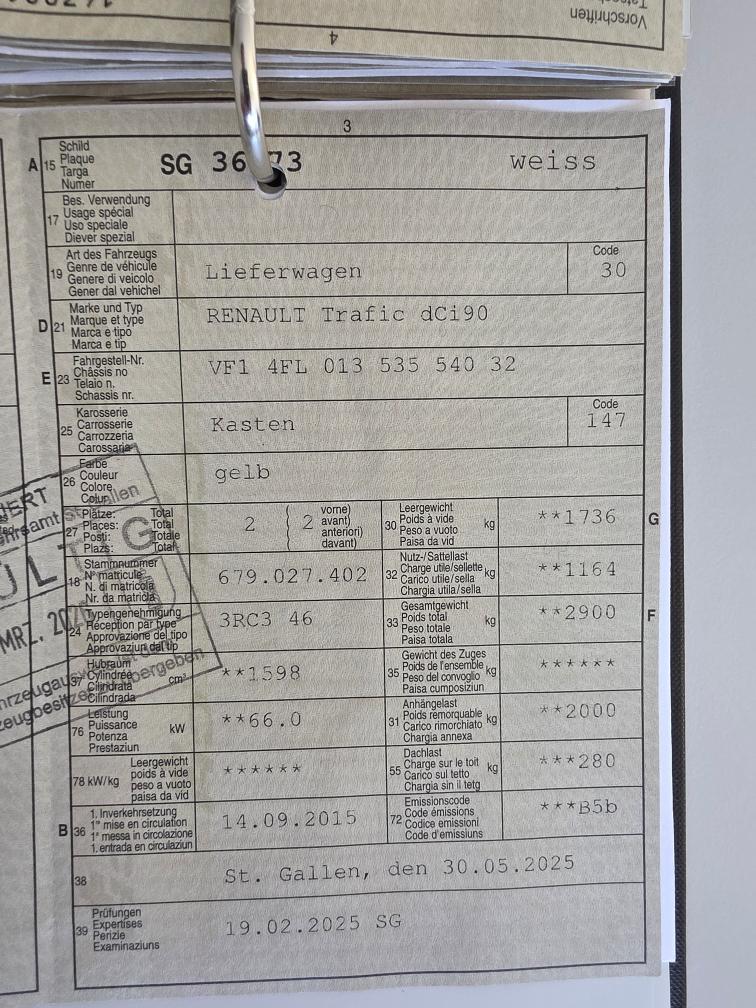 Vorschriften
4
3
A 15 Schild
Plaque
Targa
Numer
SG weiss
17 Bes. Verwendung
Usage spécial
Uso speciale
Diever spezial
19 Art des Fahrzeugs
Genre de véhicule
Genere di veicolo
Gener dal vehichel
Lieferwagen
Code
30
D 21 Marke und Typ
Marque et type
Marca e tipo
Marca e tip
RENAULT Trafic dCi90
E 23 Fahrgestell-Nr.
Châssis no
Telaio n.
Schassis nr.
VF1 4FL 013 535 540 32
25 Karosserie
Carrosserie
Carrozzeria
Carossaria
Kasten
Code
147
26 Farbe
Couleur
Colore
Colur
gelb
27 Plätze: Total
Places: Total
Posti: Totale
Plazs: Total
2 ( 2 vorne)
avant)
anteriori)
davant)
30 Leergewicht
Poids à vide
Peso a vuoto
Paisa da vid
kg
**1736
G
18 Stammnummer
N° matricule
N. di matricola
Nr. da matricla
679.027.402
32 Nutz-/Sattellast
Charge utile/sellette
Carico utile/sella
Chargia utila/sella
kg
**1164
24 Typengenehmigung
Réception par type
Approvazione del tipo
Approvaziun dal tip
3RC3 46
33 Gesamtgewicht
Poids total
Peso totale
Paisa totala
kg
**2900
F
37 Hubraum
Cylindrée
Cilindrata
Cilindrada
cm³
**1598
35 Gewicht des Zuges
Poids de l'ensemble
Peso del convoglio
Paisa cumposiziun
kg
******
76 Leistung
Puissance
Potenza
Prestaziun
kW
**66.0
31 Anhängelast
Poids remorquable
Carico rimorchiato
Chargia annexa
kg
**2000
78 kW/kg Leergewicht
poids à vide
peso a vuoto
paisa da vid
******
55 Dachlast
Charge sur le toit
Carico sul tetto
Chargia sin il tetg
kg
***280
B 36 1. Inverkehrsetzung
1re mise en circulation
1a messa in circolazione
1. entrada en circulaziun
14.09.2015
72 Emissionscode
Code émissions
Codice emissioni
Code d'emissiuns
***B5b
38
St. Gallen, den 30.05.2025
39 Prüfungen
Expertises
Perizie
Examinaziuns
19.02.2025 SG